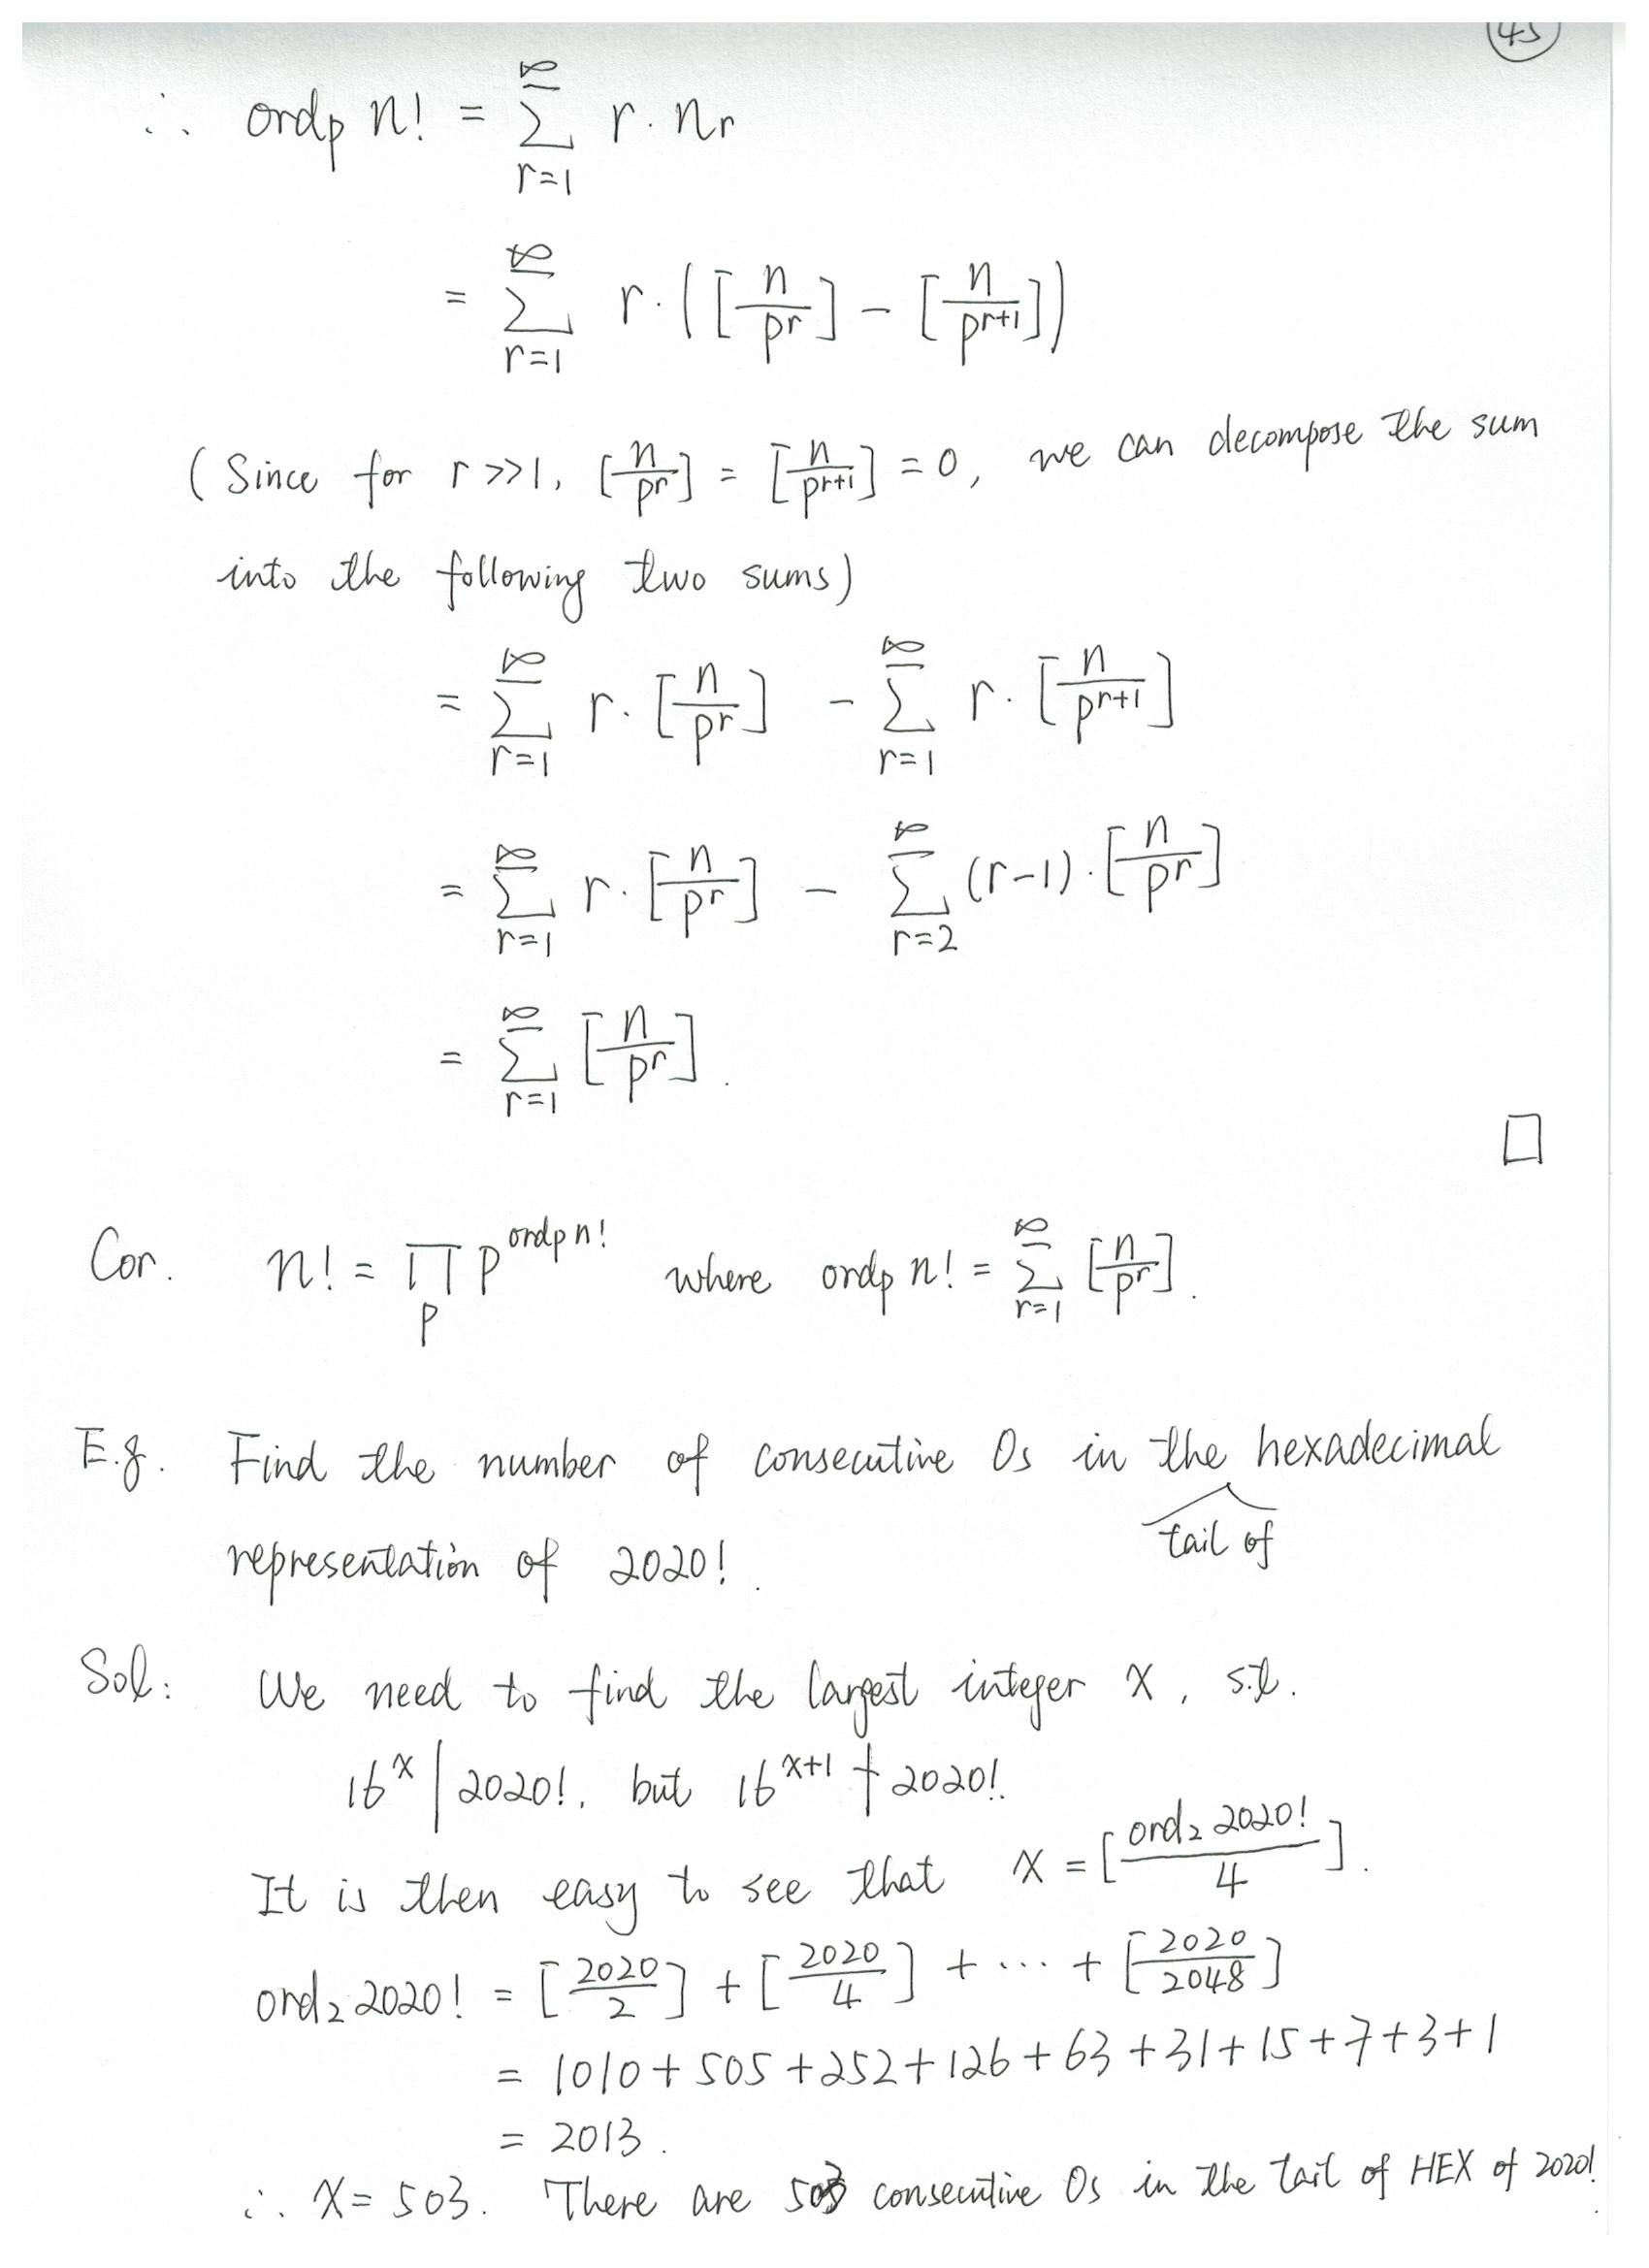 45
∴ ordₚ n! = ∑_{r=1}^{∞} r · nᵣ
= ∑_{r=1}^{∞} r · ([n/p^r] − [n/p^{r+1}])
(Since for r >> 1, [n/p^r] = [n/p^{r+1}] = 0, we can decompose the sum
into the following two sums)
= ∑_{r=1}^{∞} r · [n/p^r] − ∑_{r=1}^{∞} r · [n/p^{r+1}]
= ∑_{r=1}^{∞} r · [n/p^r] − ∑_{r=2}^{∞} (r−1) · [n/p^r]
= ∑_{r=1}^{∞} [n/p^r] .
□
Cor. n! = ∏_p p^{ordₚ n!} where ordₚ n! = ∑_{r=1}^{∞} [n/p^r] .
E.g. Find the number of consecutive 0s in the hexadecimal
tail of
representation of 2020! .
Sol: We need to find the largest integer x, s.t.
16^x | 2020!, but 16^{x+1} ∤ 2020!.
It is then easy to see that x = [ord₂ 2020!/4] .
ord₂ 2020! = [2020/2] + [2020/4] + ··· + [2020/2048]
= 1010 + 505 + 252 + 126 + 63 + 31 + 15 + 7 + 3 + 1
= 2013 .
∴ x = 503. There are 503 consecutive 0s in the tail of HEX of 2020!.